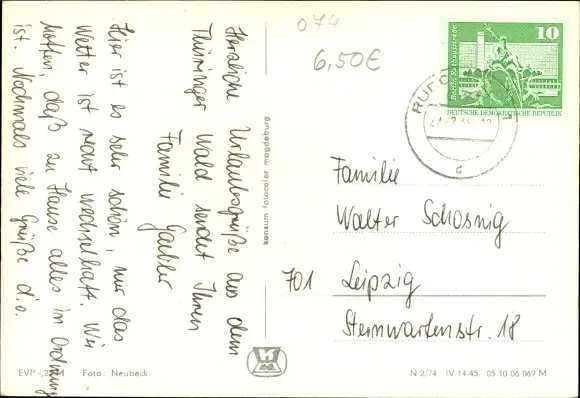 074
6,50€
Herzliche Urlaubsgrüße aus dem
Thüringer Wald sendet Ihnen
Familie Gabler
Hier ist es sehr schön, nur das
Wetter ist recht wechselhaft. Wir
hoffen, daß zu Hause alles in Ordnung
ist. Nochmals viele Grüße d.o.
konsum fotocolor magdeburg
10
Berlin, Rathausstraße
DEUTSCHE DEMOKRATISCHE REPUBLIK
Familie
Walter Schosnig
701 Leipzig
Sternwartenstr. 18
EVP -,25 M Foto: Neubeck
N 2/74 IV-14-45 05 10 06 069 M